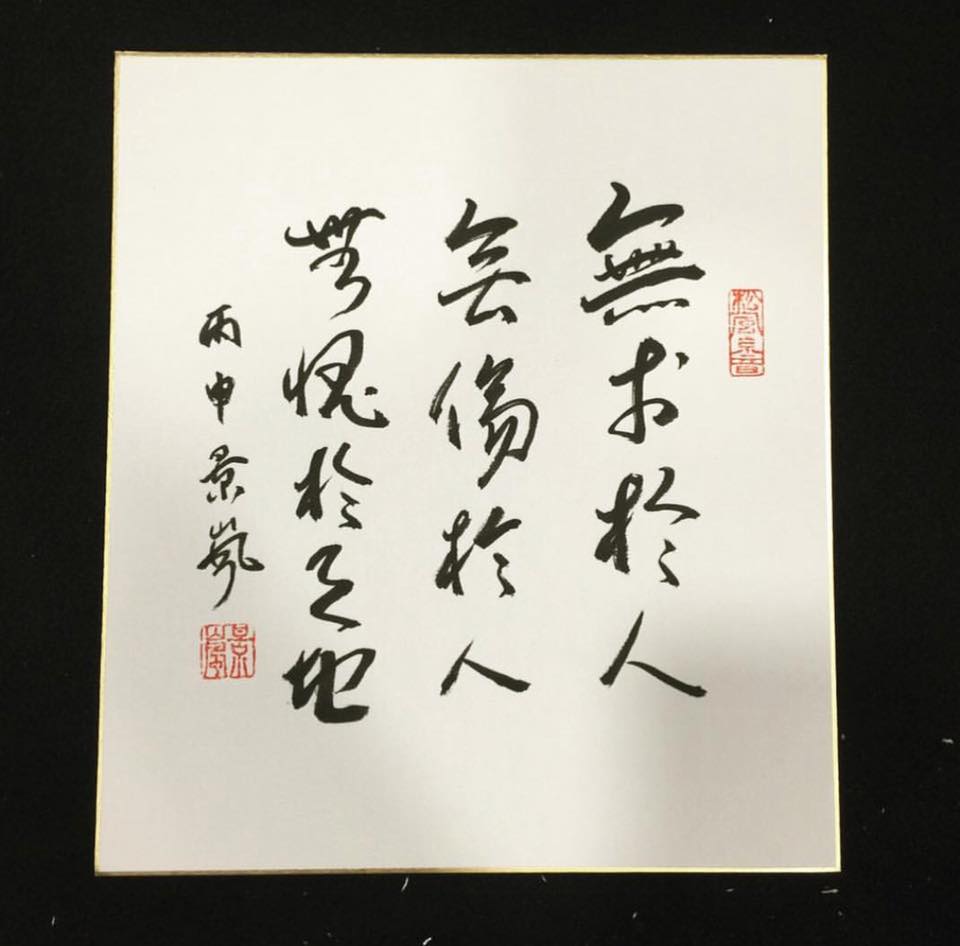 無求於人
無傷於人
無愧於天地
丙申景嵐
景嵐